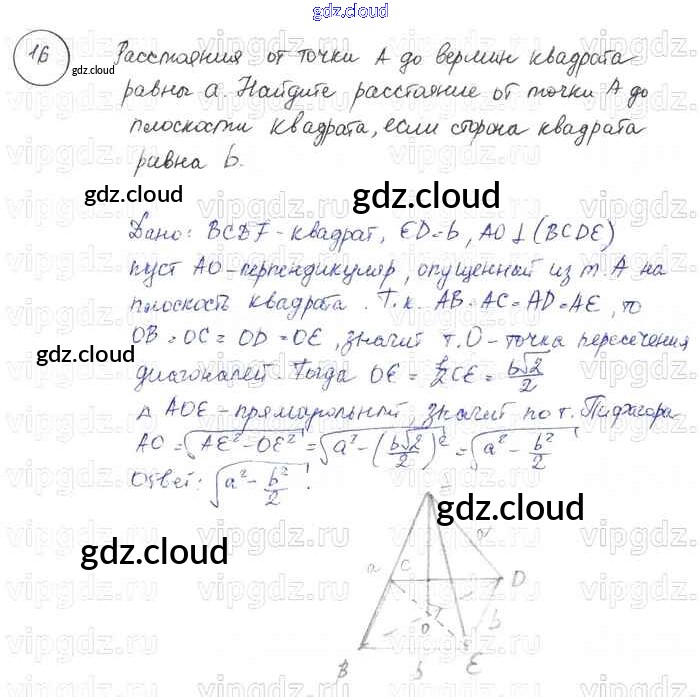 gdz.cloud
16 Расстояния от точки А до вершин квадрата
gdz.cloud
равны a. Найдите расстояние от точки А до
плоскости квадрата, если сторона квадрата
равна b.
gdz.cloud
gdz.cloud
Дано: BCDF - квадрат, ED=b, AO⊥(BCDE)
пуст AO - перпендикуляр, опущенный из т. А на
плоскость квадрата. Т.к. AB=AC=AD=AE, то
OB=OC=OD=OE, значит т.О - точка пересечения
gdz.cloud
диагоналей. Тогда OE = 1/2CE = b√2/2
△ AOE - прямоугольный, значит по т. Пифагора
AO = √AE²-OE² = √a²-(b√2/2)² = √a²-b²/2
Ответ: √a²-b²/2!
gdz.cloud
gdz.cloud
a
a
C
D
O
b
B
b
E
vipgdz.ru